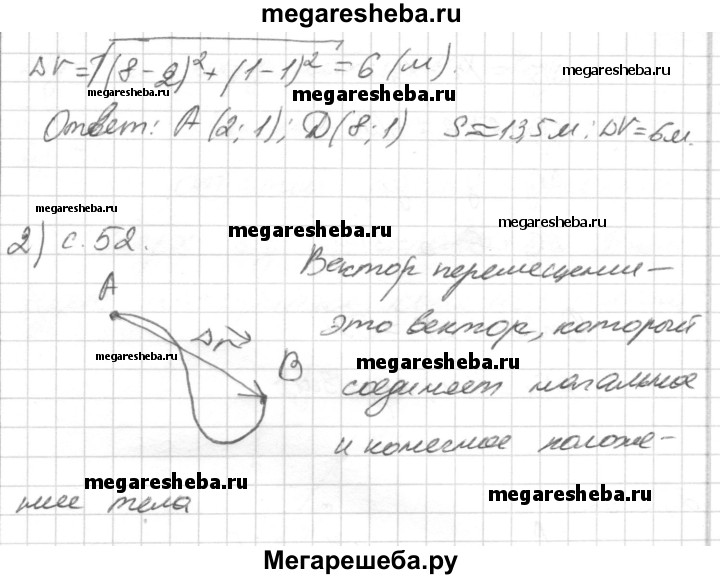 megaresheba.ru
Δr=√(8-2)²+(1-1)² = 6 (м).
megaresheba.ru megaresheba.ru megaresheba.ru
Ответ: A (2; 1); D (8; 1) S≈13,5 м; Δr=6м.
megaresheba.ru megaresheba.ru megaresheba.ru
2) с. 52.
Вектор перемещения –
A
это вектор, который
Δr
megaresheba.ru megaresheba.ru
B
соединяет начальное
и конечное положе-
megaresheba.ru megaresheba.ru
ние тела
Мегарешеба.ру